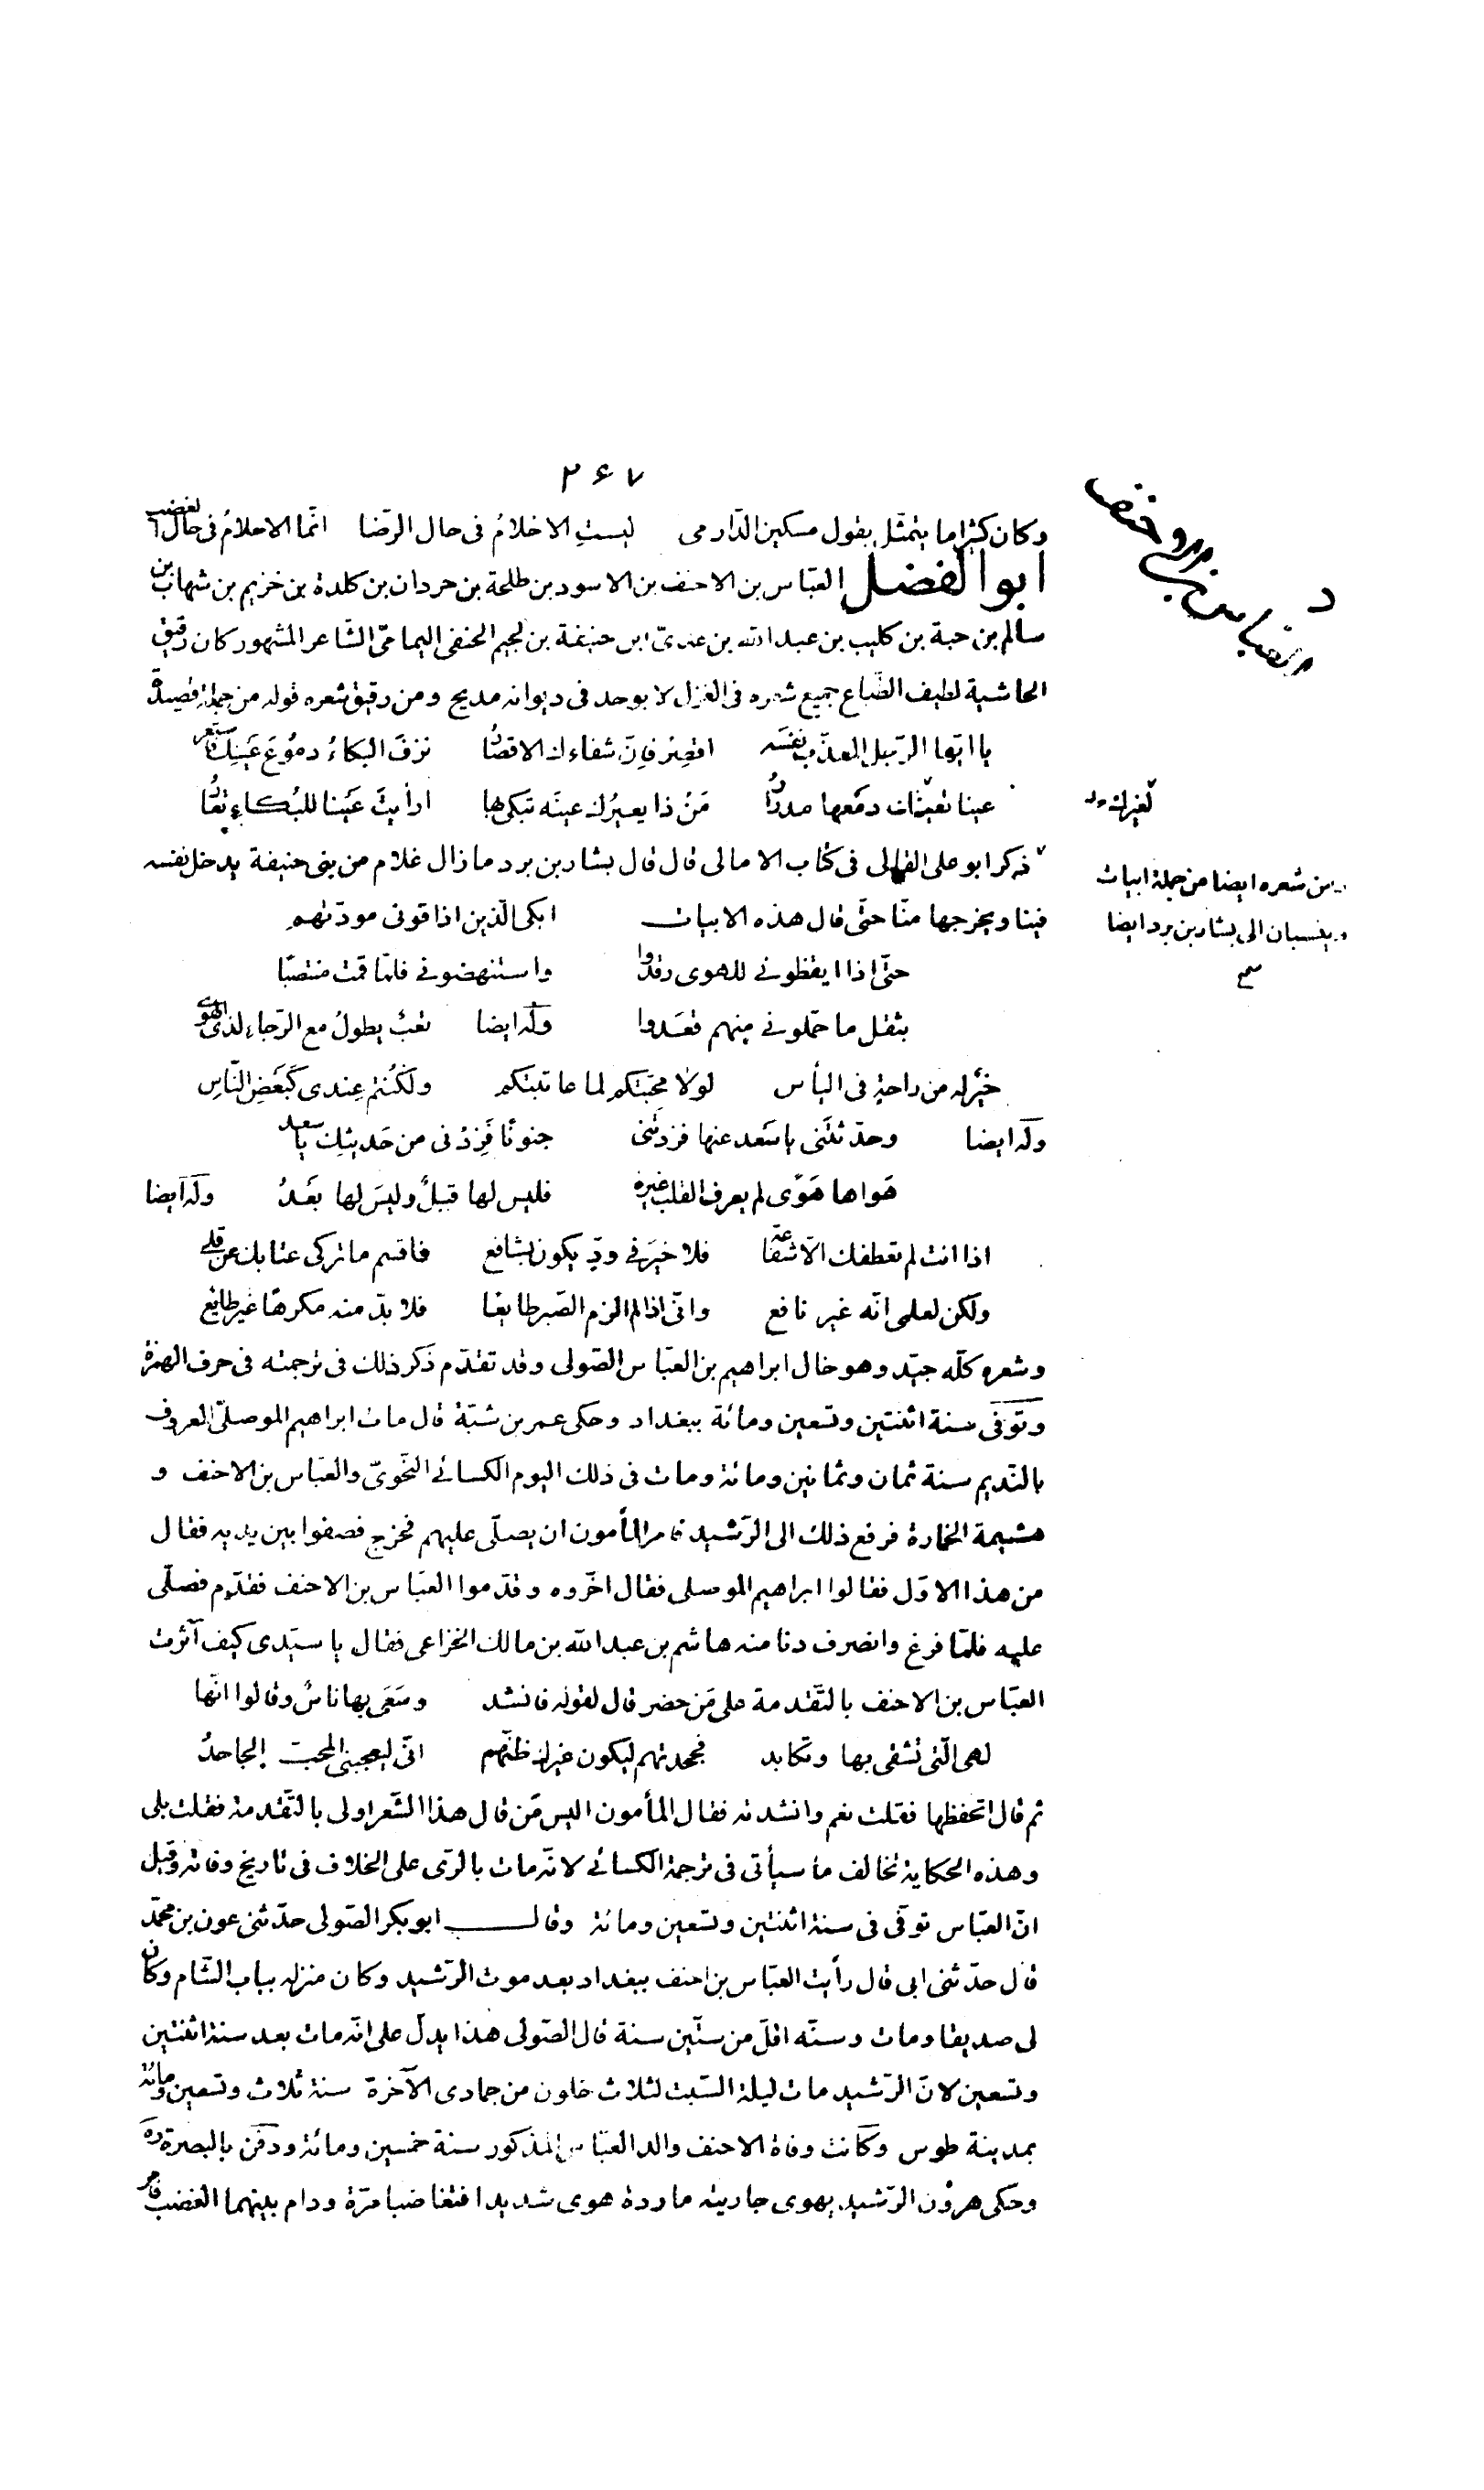 ۲۶۷
وكان كثيرا ما يتمثّل بقول مسكين الدّارمى ليستِ الاحلامُ فى حال الرّضا انّما الاحلامُ فى حال الغضب
ابوالفضل العبّاس بن الاحنف بن الاسود بن طلحة بن حردان بن كلدة بن خزيم بن شهاب بن
سالم بن حبة بن كليب بن عبد الله بن عدىّ بن حنيفة بن لجيم الحنفى اليمامىّ الشّاعر المشهور كان رقيق
الحاشية لطيف الطّباع جميع شعره فى الغزل لا يوجد فى ديوانه مديح ومن رقيق شعره قوله من جملة قصيدة
يا ايّها الرّجل المعذّب نفسَه اقصِر فاِنّ شفاءك الاقصارُ نزفَ البكاءُ دموُعَ عَينِك فاستعر
عينا لغيرك دمعها مدرارُ مَنْ ذا يعيرُك عينَه تبكى بها ارأيتَ عَينا للبُكاءِ تعارُ
ذكر ابو على القالى فى كتاب الامالى قال قال بشار بن برد ما زال غلام من بنى حنيفة يدخل نفسه
فينا ويخرجها منّا حتّى قال هذه الابيات ابكى الّذين اذاقونى مودّتهم
حتّى اذا ايقظونے للهوى رقدوا واستنهضونے فلمّا قمت منتصبًا
بثقل ما حمّلونے منهم قعَدوا وله ايضا تعبٌ يطولُ مع الرّجاء لذى الهوى
خيرٌ له من راحةٍ فى اليأس لولا محبّتكم لما عاتبتكم ولكُنتم عِندى كَبَعَضِ النّاسِ
وله ايضا وحدّثتَنى يا سَعد عنها فزدتنى جنونًا فَزِدْنى من حَديثِك يا سعد
هَواها هَوًى لم يعرف القلب غيره فليس لها قبلٌ وليسَ لها بَعَدُ وله ايضا
اذا انت لم تعطفك الّا شفاعة فلا خيَرَ فى ودٍّ يكون بشافع فاقسم ما تركى عتابك عن قلى
ولكن لعلمى انّه غير نافع وانّى اذا لم الزم الصّبر طايعا فلا بدّ منه مكرهًا غير طايع
وشعره كلّه جيّد وهو خال ابراهيم بن العبّاس الصّولى وقد تقدّم ذكر ذلك فى ترجمته فى حرف الهمزة
وتوّفى سنة اثنتين وتسعين ومائة ببغداد وحكى عمر بن شبّة قال مات ابراهيم الموصلىّ المعروف
بالنّديم سنة ثمان وثمانين ومائة ومات فى ذلك اليوم الكسائے النّحوىّ والعبّاس بن الاحنف و
هشيمة الخمارة فرفع ذلك الى الرّشيد فامر المأمون ان يصلّى عليهم فخرج فصفوا بين يديه فقال
من هذا الاوّل فقالوا ابراهيم الموصلى فقال اخّروه وقدّموا العبّاس بن الاحنف فقدّم فصلّى
عليه فلمّا فرغ وانصرف دنا منه هاشم بن عبد الله بن مالك الخزاعى فقال يا سيّدى كيف آثرت
العبّاس بن الاحنف بالتّقدمة على مَن حضر قال لقوله فانشد وسَعَى بها ناسٌ وقالوا انّها
لهى الّتى تشقى بها وتكابد فجحدتهم ليكون غيرك ظنّهم انّى ليعجبنى المحبّ الجاحدُ
ثم قال اتحفظها فقلت نعم وانشدته فقال المأمون اليس مَن قال هذا الشّعر اولى بالتّقدمة فقلت بلى
وهذه الحكاية تخالف ما سيأتى فى ترجمة الكسائے لانّه مات بالرّى على الخلاف فى تاريخ وفاته وقيل
انّ العبّاس توفّى فى سنة اثنتين وتسعين ومائة وقال ابو بكر الصّولى حدّثنى عون بن محمّد
قال حدّثنى ابى قال رأيت العبّاس بن احنف ببغداد بعد موت الرّشيد وكان منزله بباب الشّام وكان
لى صديقا ومات وسنّه اقلّ من ستّين سنة قال الصّولى هذا يدلّ على انّه مات بعد سنة اثنتين
وتسعين لانّ الرّشيد مات ليلة السّبت لثلاث خلون من جمادى الآخرة سنة ثلاث وتسعين ومائة
بمدينة طوس وكانت وفاة الاحنف والد العبّاس المذكور سنة خمسين ومائة ودفن بالبصرة ره
وحكى هرون الرّشيد يهوى جاريته ماردة هوى شديدا فتغاضبا مرّة ودام بينهما الغضب فامر
العباس بن احنف
لغيرك
ومن شعره ايضا من جملة ابيات
وينسبان الى بشار بن برد ايضا